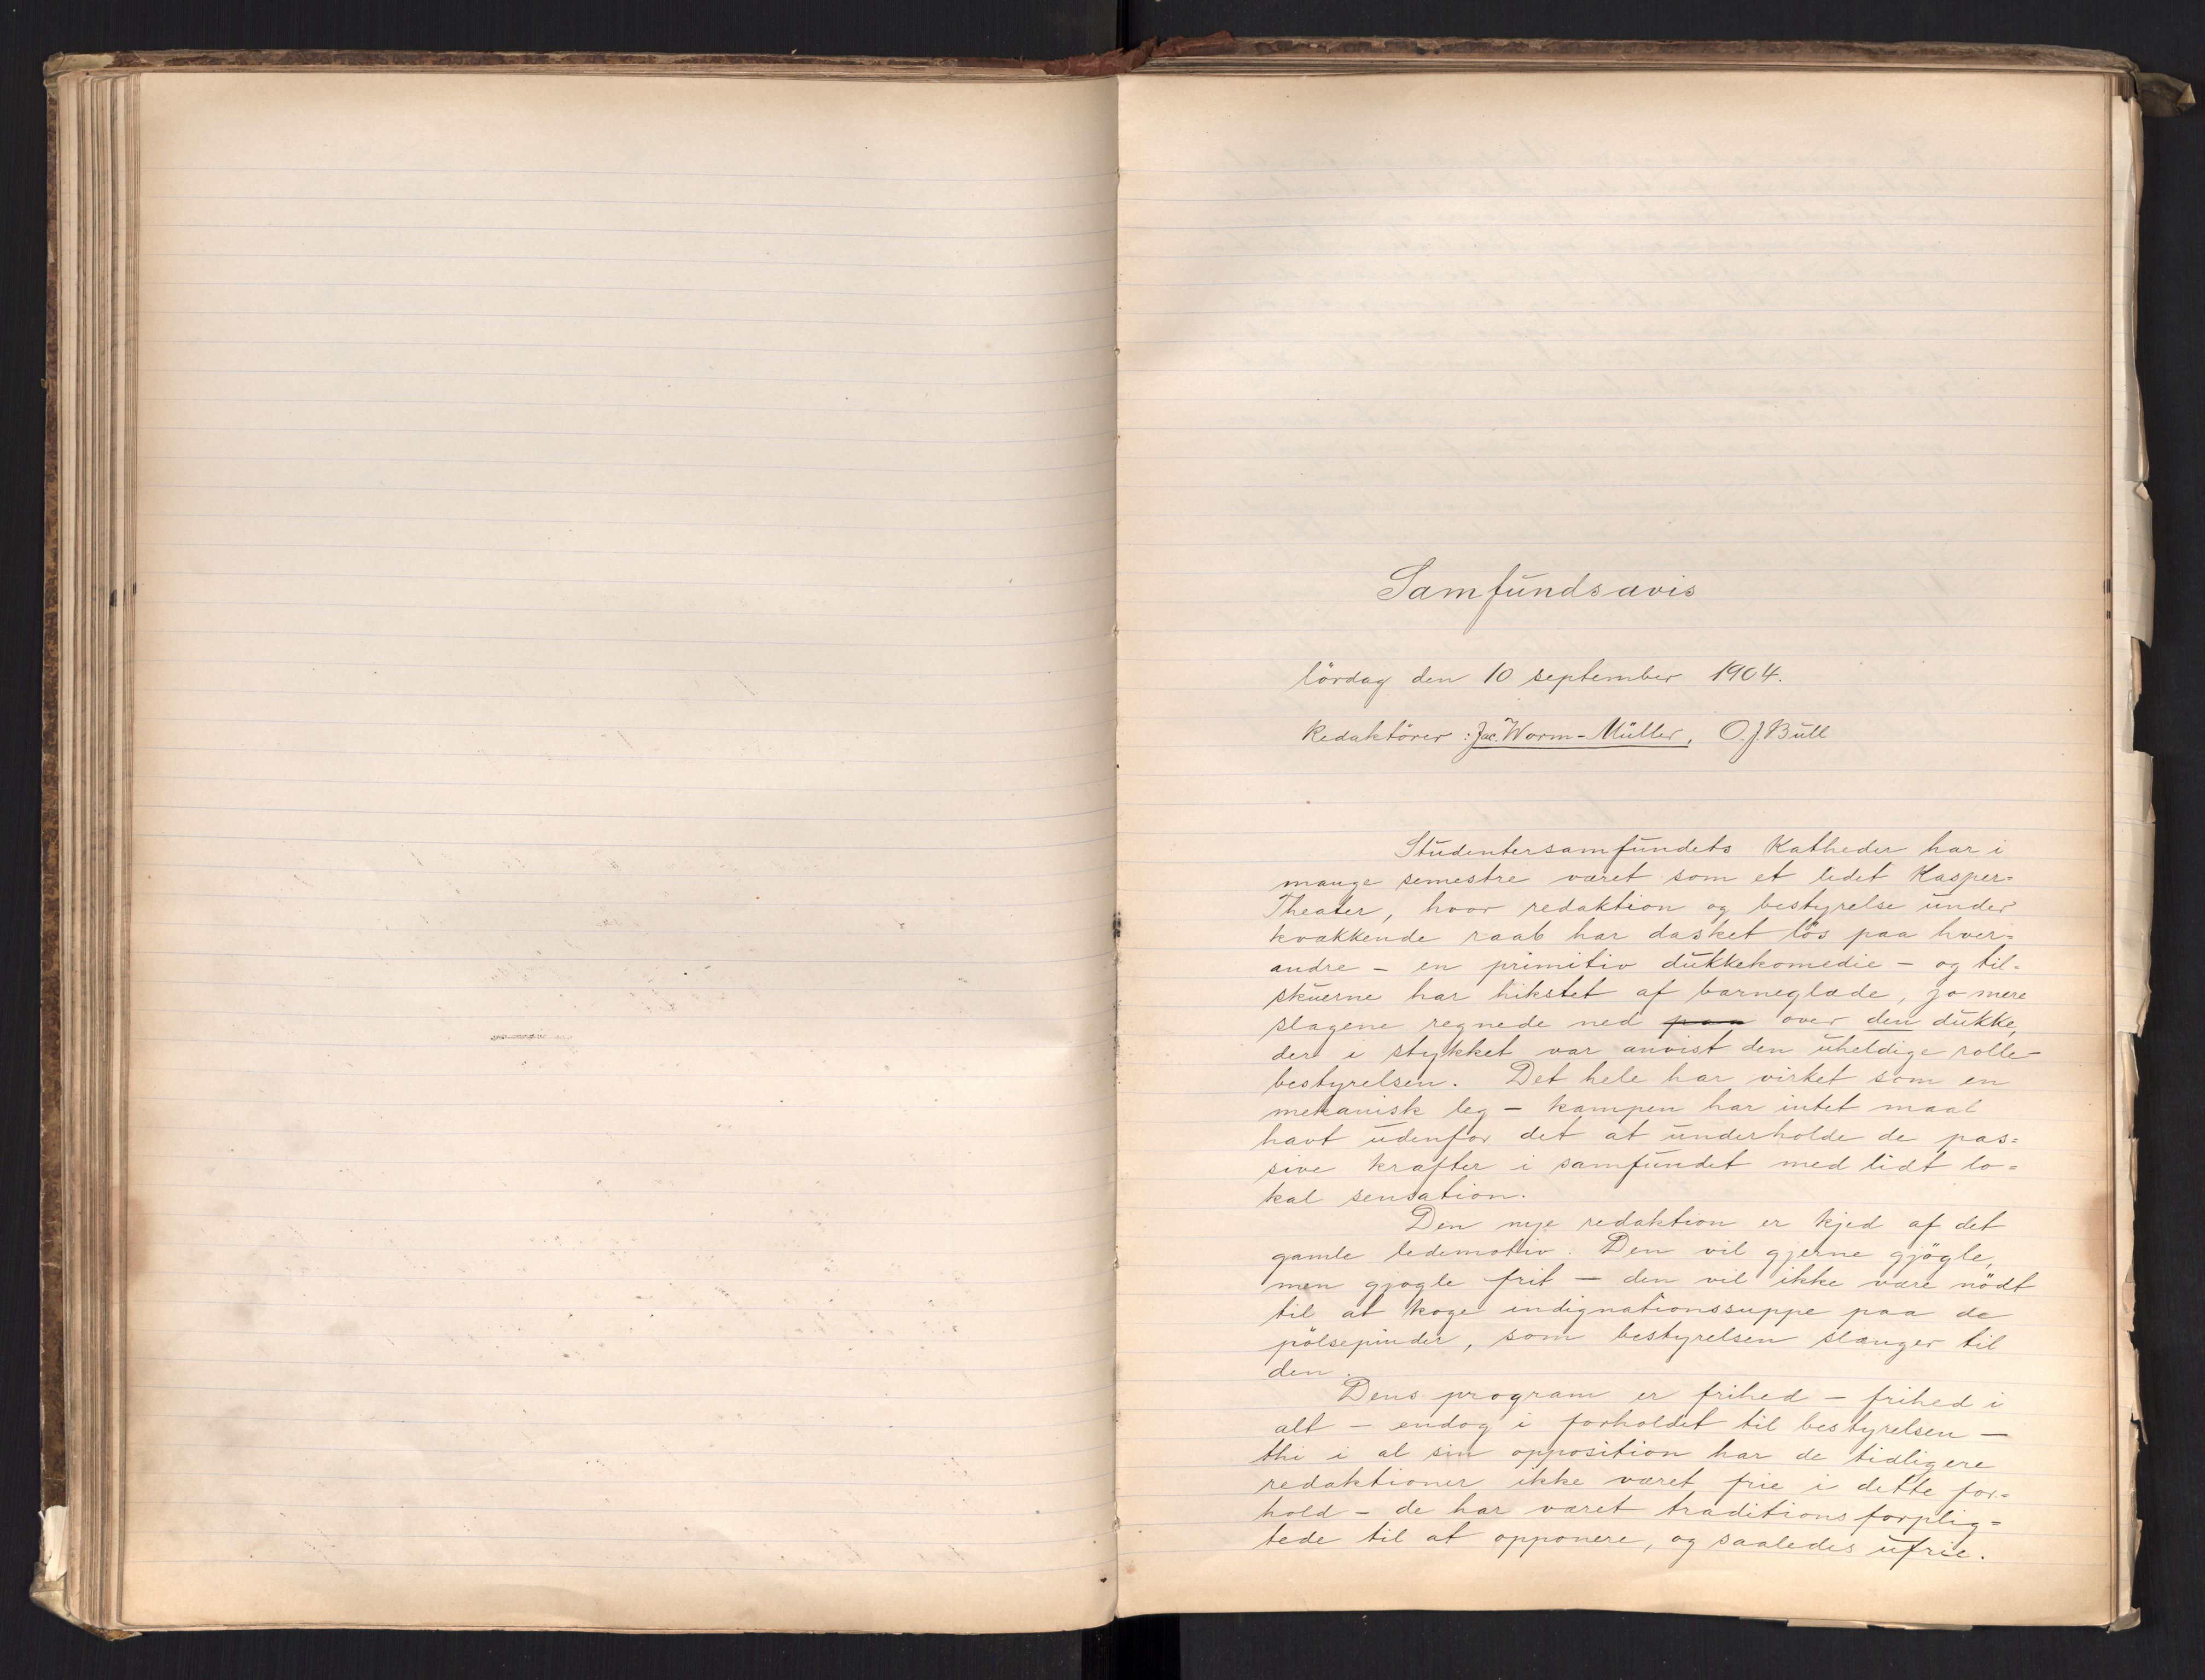 Samfundsavis
lördag den 10 september 1904.
Redaktörer: Jac. Worm-Müller, O.J. Bull
Studentersamfundets Katheder har i
mange semestre været som et lidet Kasper=
Theater, hvor redaktion og bestyrelse under
kvækkende raab har dasket lös paa hver=
andre – en primitiv dukkekomedie – og til=
skuerne har hikstet af barneglæde, jo mere
slagene regnede ned paa over den dukke,
der i stykket var anvist den uheldige rolle –
bestyrelsen. Det hele har virket som en
mekanisk leg – kampen har intet maal
havt udenfor det at underholde de pas=
sive kræfter i samfundet med lidt lo=
kal sensation.
Den nye redaktion er kjed af det
gamle ledemotiv. Den vil gjerne gjögle,
men gjögle frit – den vil ikke være nödt
til at koge indignationssuppe paa de
pölsepinder, som bestyrelsen slænger til
den.
Dens program er frihed – frihed i
alt – endog i forholdet til bestyrelsen –
thi i al sin opposition har de tidligere
redaktioner ikke været frie i dette for=
hold – de har været traditionsforplig=
tede til at opponere, og saaledes ufrie.